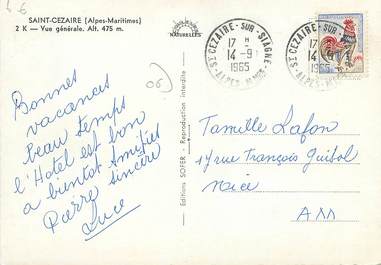 SAINT-CEZAIRE (Alpes-Maritimes)
2 K — Vue générale. Alt. 475 m.
NATURELLES
ST CEZAIRE - SUR - SIAGNE
17 H
14 - 9
1965
ALPES-MMES
ST CEZAIRE - SUR -
17 H
14 -
1965
06)
Bonnes
vacances
beau temps
l'Hotel est bon
a bientôt Amitiés
Pierre sincère
Luce
Editions SOFER - Reproduction interdite
Famille Lafon
17 rue François Guisol
Nice
A M